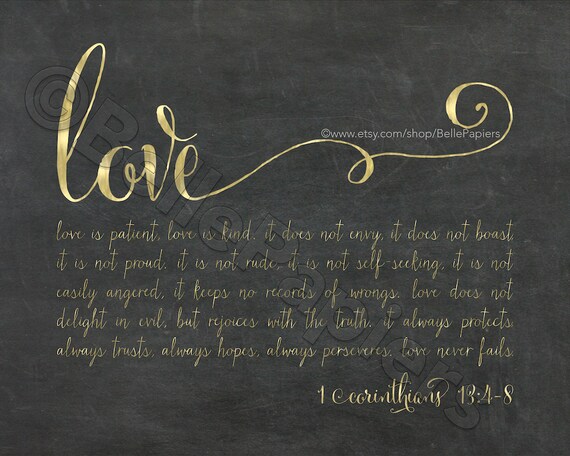 love
©www.etsy.com/shop/BellePapiers
love is patient, love is kind. it does not envy, it does not boast,
it is not proud. it is not rude, it is not self-seeking, it is not
easily angered, it keeps no records of wrongs. love does not
delight in evil, but rejoices with the truth. it always protects
always trusts, always hopes, always perseveres. love never fails.
1 Corinthians 13:4-8
©BellePapiers